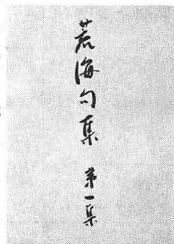 荒海句集 第一集